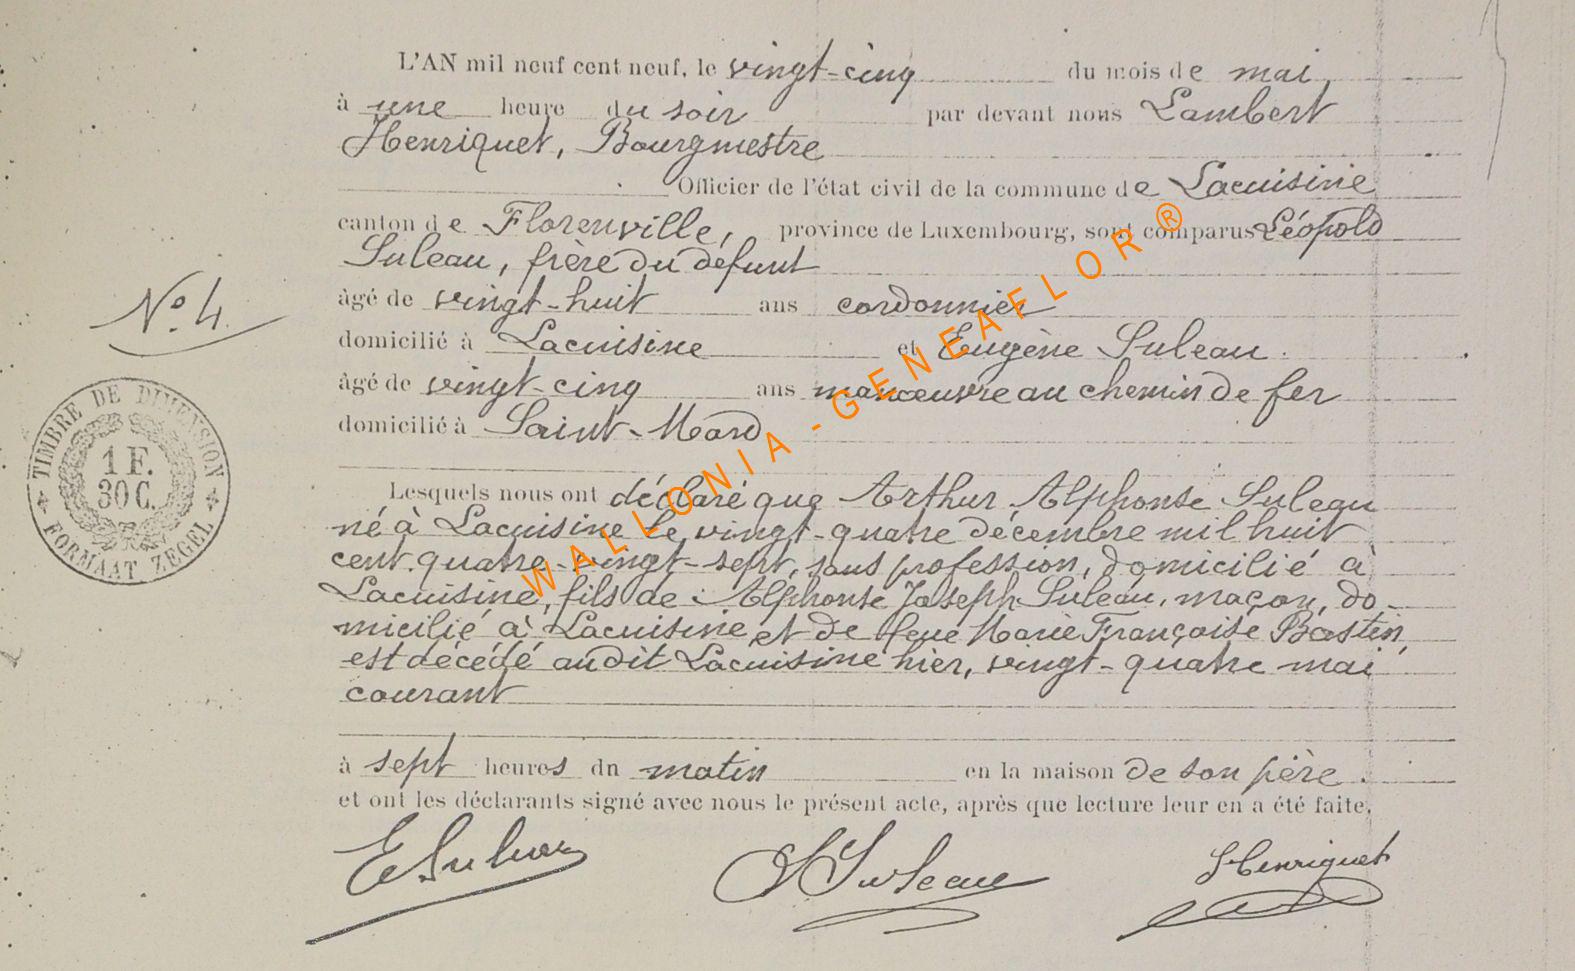 L'AN mil neuf cent neuf, le vingt-cinq du mois de mai,
à une heure du soir par devant nous Lambert
Henriquet, Bourgmestre
Officier de l'état civil de la commune de Lacuisine
canton de Florenville, province de Luxembourg, sont comparus Léopold
Suleau, frère du défunt
âgé de vingt-huit ans cordonnier
No. 4.
domicilié à Lacuisine et Eugène Suleau.
âgé de vingt-cinq ans manœuvre au chemin de fer
domicilié à Saint-Mard
TIMBRE DE DIMENSION
1 F.
30 C.
FORMAAT ZEGEL
Lesquels nous ont déclaré que Arthur Alphonse Suleau
né à Lacuisine le vingt-quatre décembre mil huit
cent quatre-vingt-sept, sans profession, domicilié à
Lacuisine, fils de Alphonse Joseph Suleau, maçon, do-
micilié à Lacuisine et de feue Marie Françoise Bastin,
est décédé audit Lacuisine hier, vingt-quatre mai
courant
à sept heures du matin en la maison de son père.
et ont les déclarants signé avec nous le présent acte, après que lecture leur en a été faite.
E Suleau
Suleau
Henriquet
WALLONIA-GENEAFLOR®